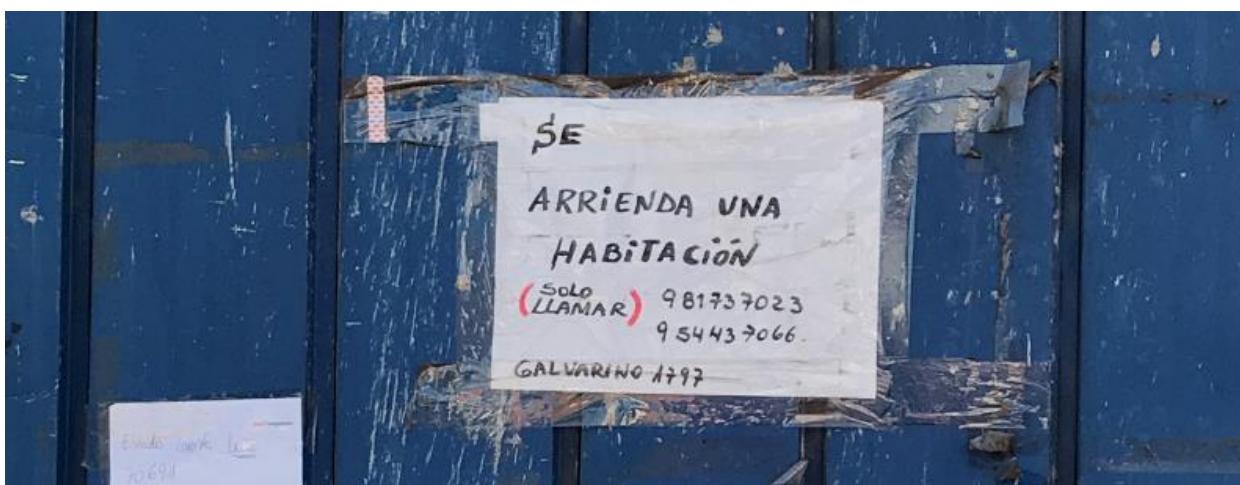 SE
ARRIENDA UNA
HABITACIÓN
(SOLO
LLAMAR) 981737023
954437066.
GALVARINO 1797